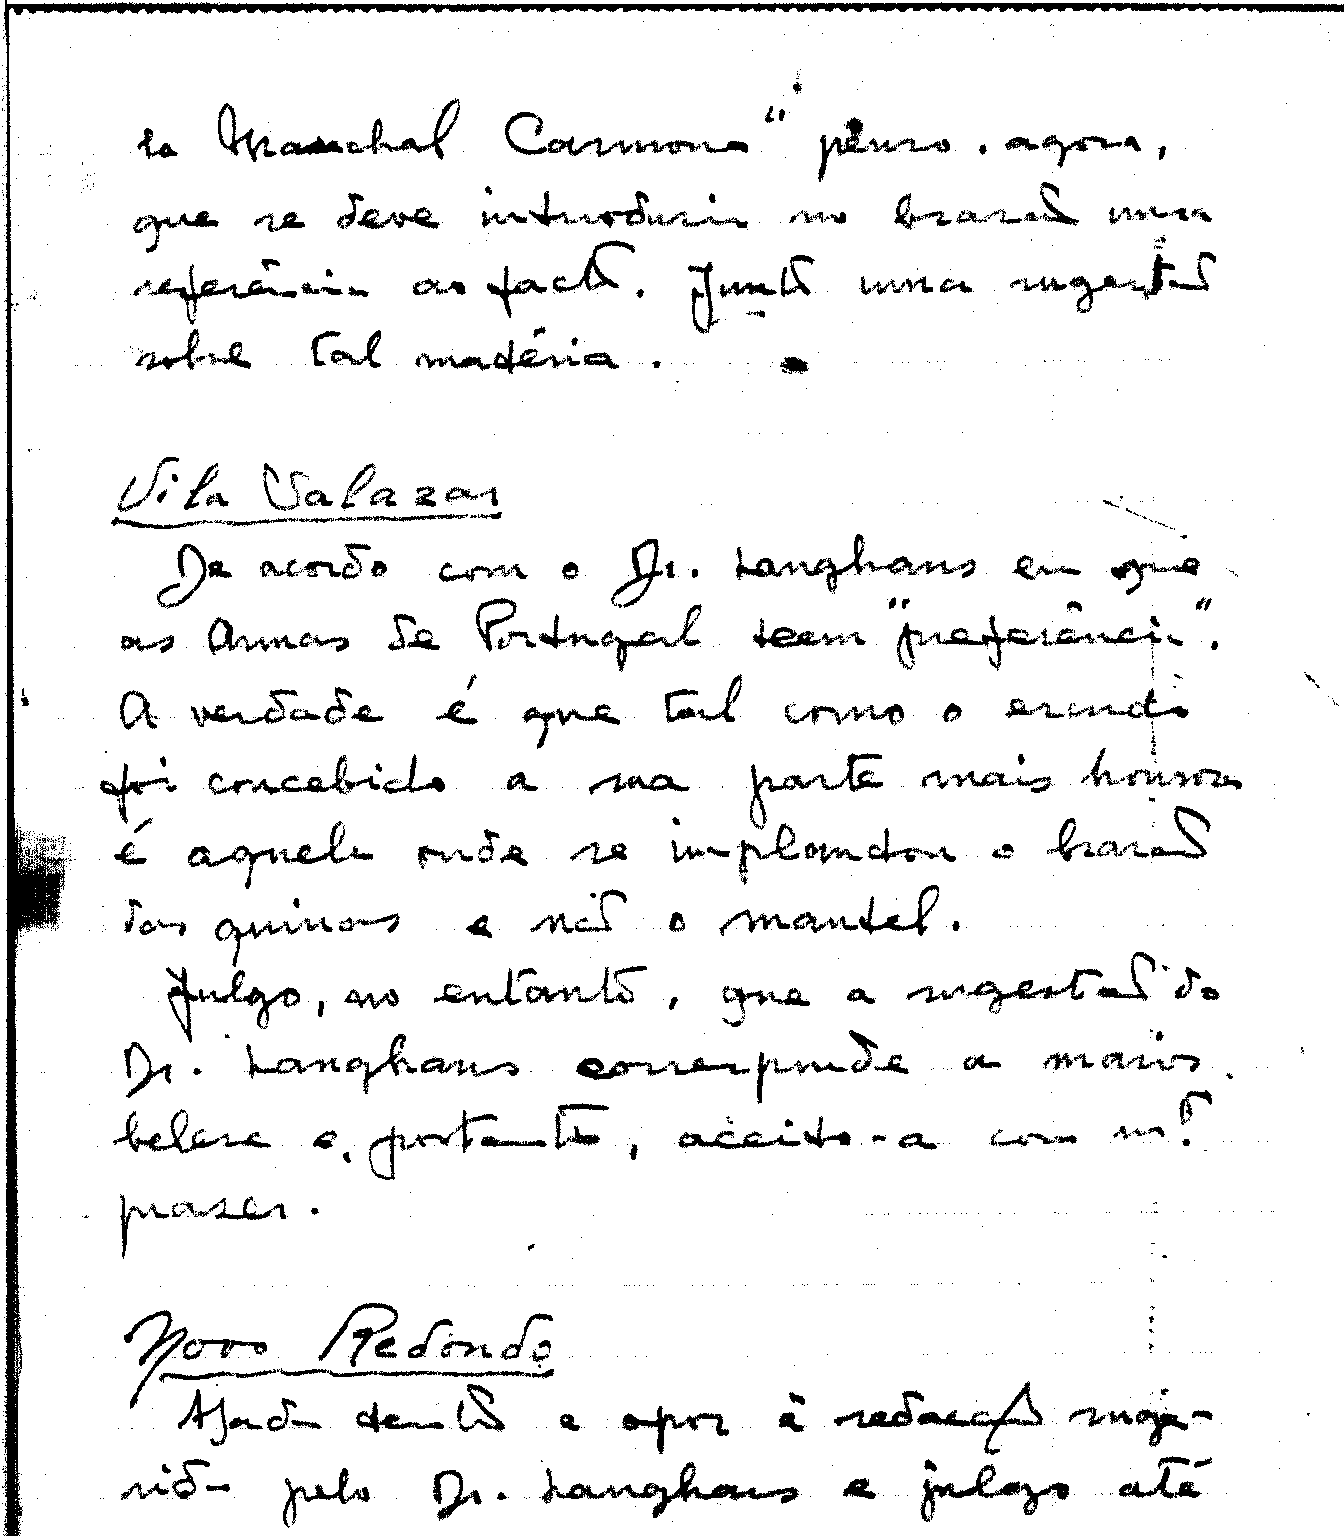 la Marechal Carmona" penso. agora,
que se deve introduzir no brasão uma
referência ao facto. Junto uma sugestão
sobre tal matéria.
Vila Salazar
De acordo com o Dr. Langhans em que
as Armas de Portugal teem "preferência".
A verdade é que tal como o escudo
foi concebido a sua parte mais honrosa
é aquela onde se implantou o brasão
das quinas e não o mantel.
Julgo, no entanto, que a sugestão do
Dr. Langhans corresponde a maior
beleza e, portanto, aceito-a com m.to
prazer.
Novo Redondo
Nada tenho a opor à redacção suge-
rida pelo Dr. Langhans e julgo até